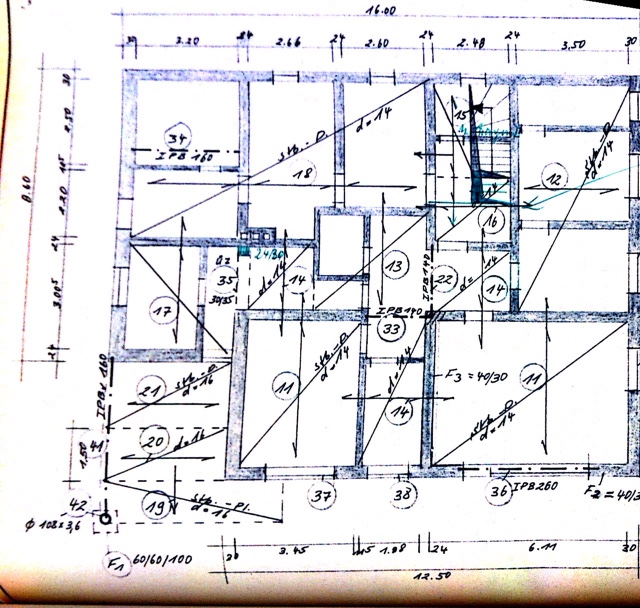 16.00
30 3.20 24 2.66 24 2.60 24 2.48 24 3.50 30
30
34
IPB 160
stb.-P.
d=14
18
15
12
8.60
2.20
24
16
24/30
13
14
d=14
22
IPB 140
d=
14
17
35
30/35
3.00⁵
IPB 140
33
24
IPBv 160
21
stb.-P.
d=16
11
stb.-P.
d=14
14
d=14
F3 = 40/30
11
stb.-P.
d=14
1.50
41
20
d=16
19
stb.-Pl.
d=16
37
38
36
IPB 260
42
Φ 108×3,6
F1 60/60/100
30 3.45 15 1.98 24 6.11 30
12.50